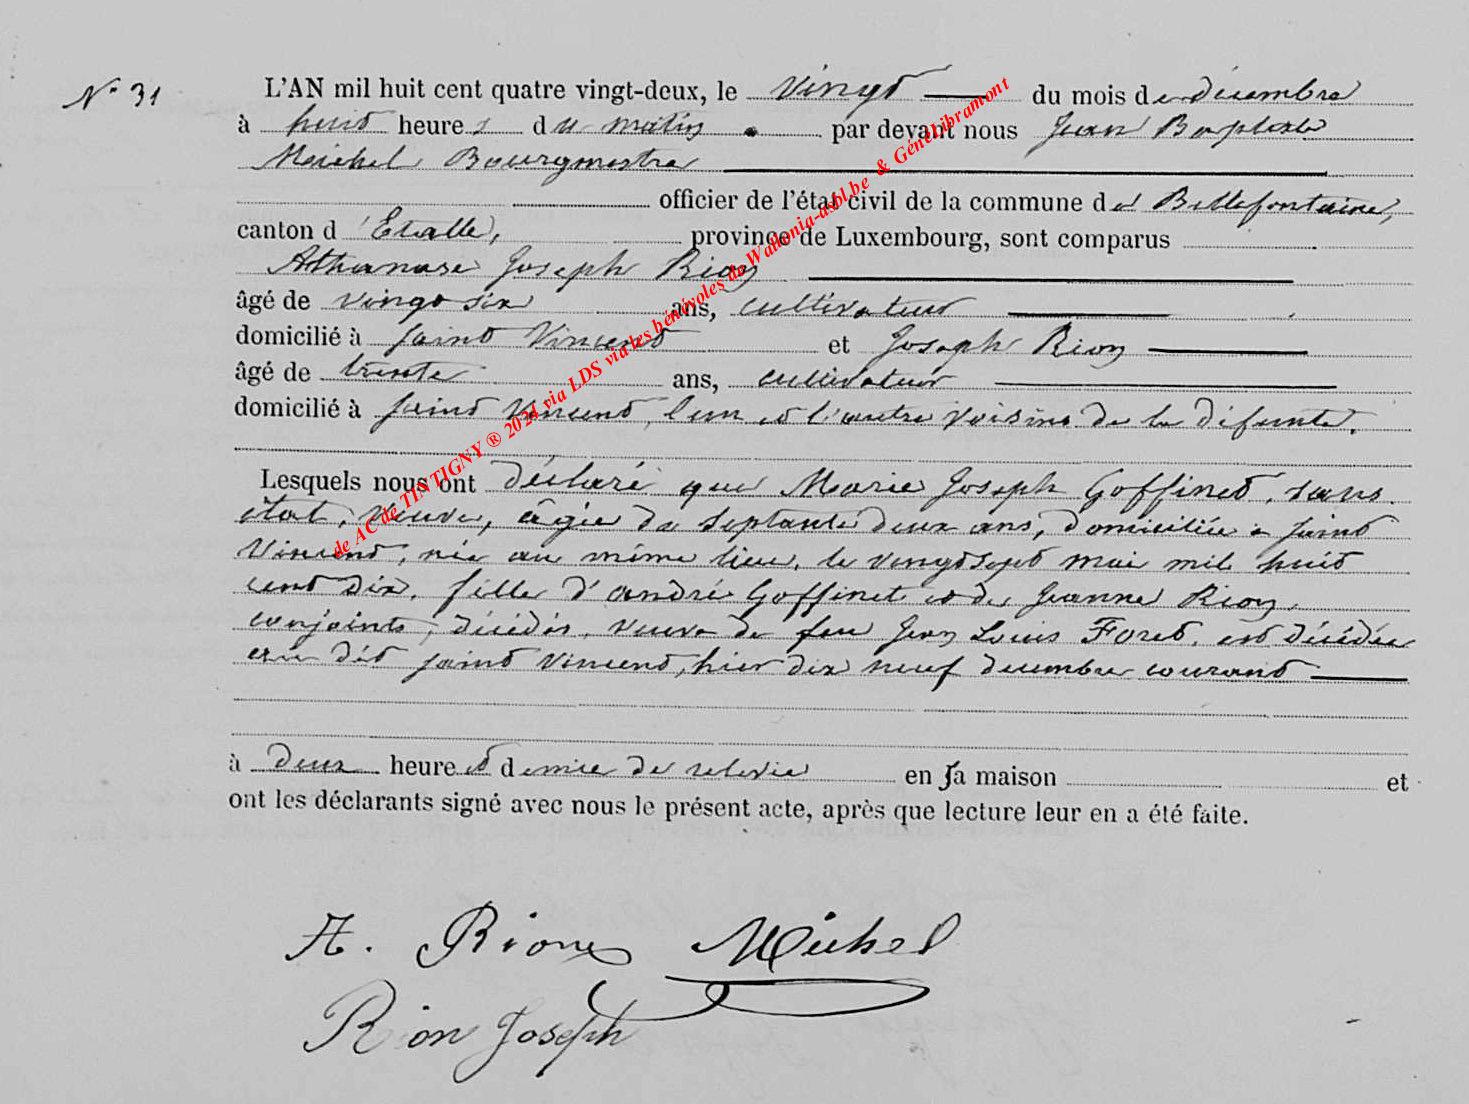 N° 31
L'AN mil huit cent quatre vingt-deux, le vingt du mois de décembre
à huit heures du matin par devant nous Jean Baptiste
Michel Bourgmestre
officier de l'état civil de la commune de Bellefontaine,
canton d'Etalle, province de Luxembourg, sont comparus
Athanase Joseph Rion
âgé de vingt six ans, cultivateur
domicilié à Saint Vincent et Joseph Rion
âgé de trente ans, cultivateur
domicilié à Saint Vincent, l'un et l'autre voisins de la défunte.
Lesquels nous ont déclaré que Marie Joseph Goffinet, sans
état, veuve, âgée de septante deux ans, domiciliée à Saint
Vincent, née au même lieu, le vingt sept mai mil huit
cent dix, fille d'André Goffinet et de Jeanne Rion,
conjoints, décédés, veuve de feu Jean Louis Foret, est décédée
au dit Saint Vincent, hier dix neuf décembre courant
à deux heure et demie de relevée en sa maison et
ont les déclarants signé avec nous le présent acte, après que lecture leur en a été faite.
A. Rion Michel
Rion Joseph
de AC de TINTIGNY ® 2024 via LDS via les bénévoles de Wallonia-asbl.be & GénéLibramont